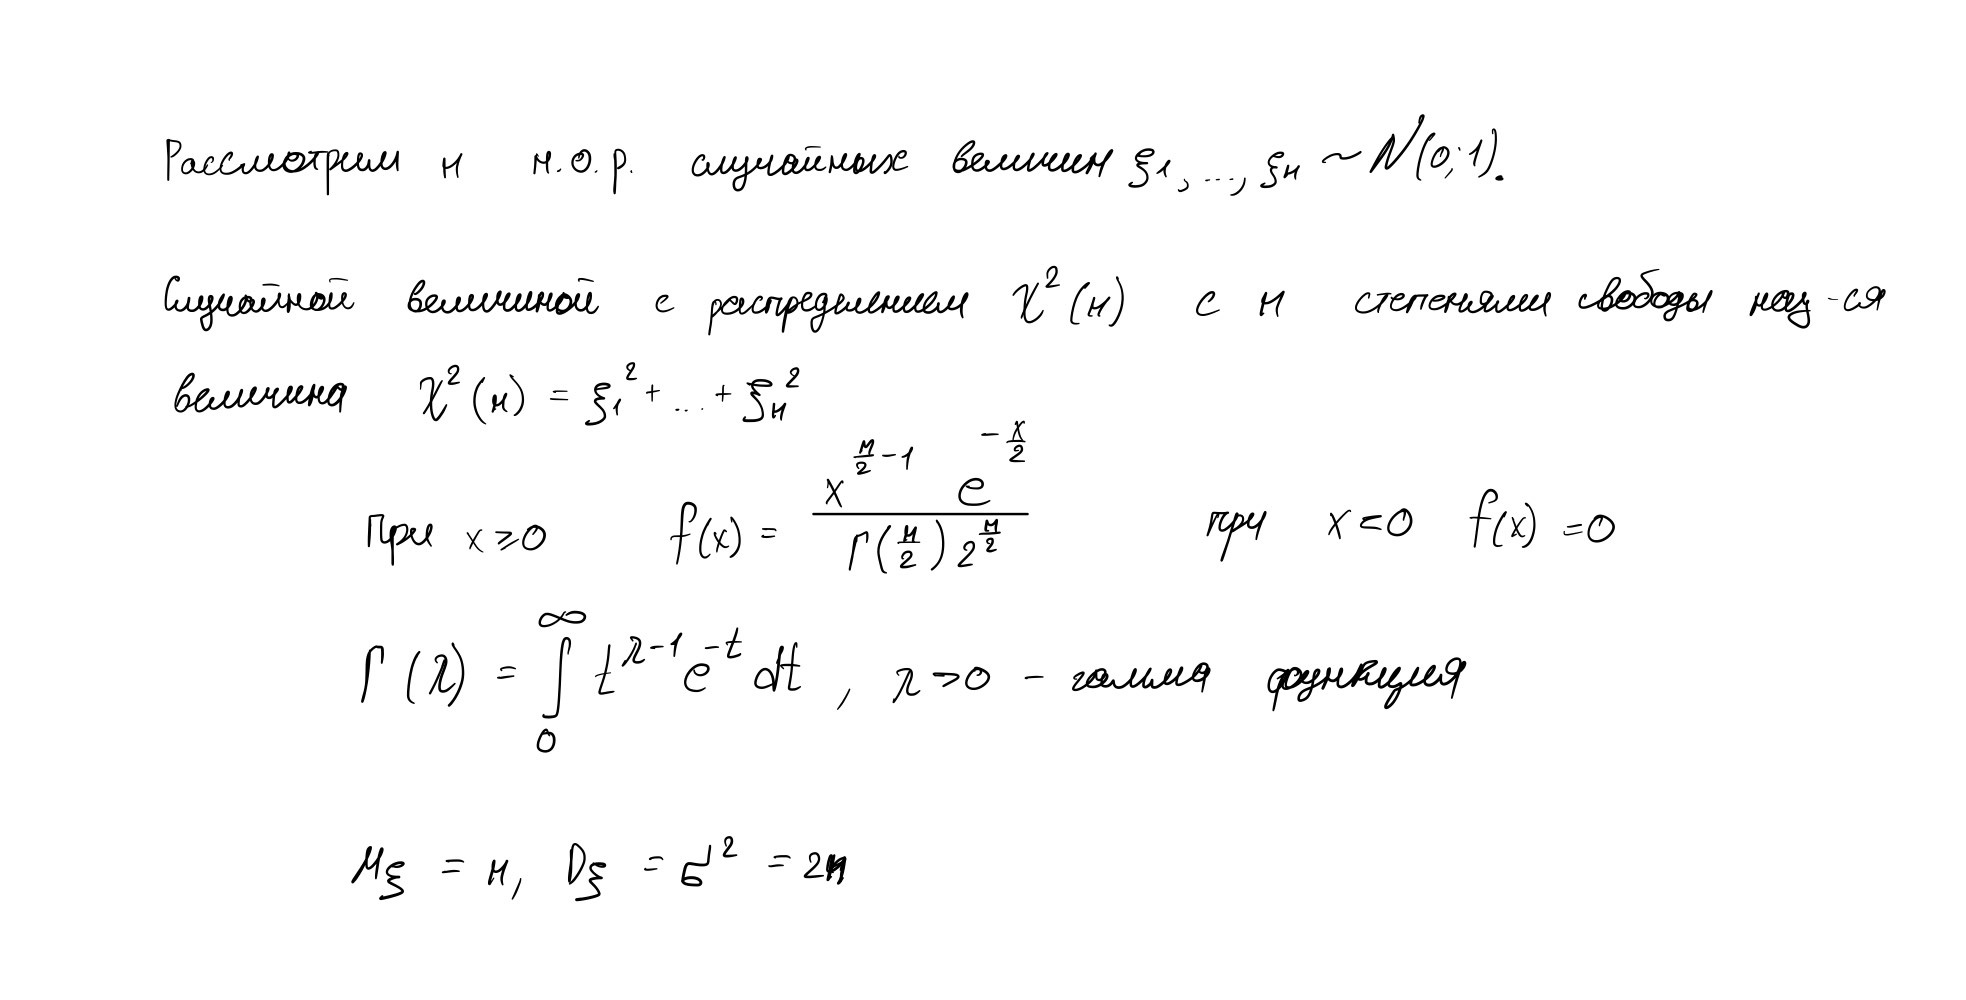 Рассмотрим н н.о.р. случайных величин ξ₁, ..., ξₙ ~ N(0; 1).
Случайной величиной с распределением χ²(н) с н степенями свободы наз-ся
величина χ²(н) = ξ₁² + ... + ξₙ²
При x ≥ 0 f(x) = \frac{x^{\frac{н}{2} - 1} e^{-\frac{x}{2}}}{Γ(\frac{н}{2}) 2^{\frac{н}{2}}} при x < 0 f(x) = 0
Γ(λ) = \int_0^∞ t^{λ-1} e^{-t} dt, λ > 0 - гамма функция
Mξ = н, Dξ = σ² = 2н